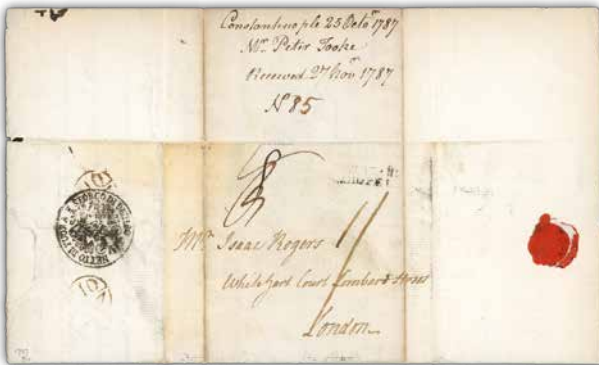 Constantinople 25 Octo^r 1787
M^r Peter Tooke
Received 27 Nov^r 1787
N 85
M^r Isaac Rogers
White hart Court Lombard Street
London
NETTO DI FUORI